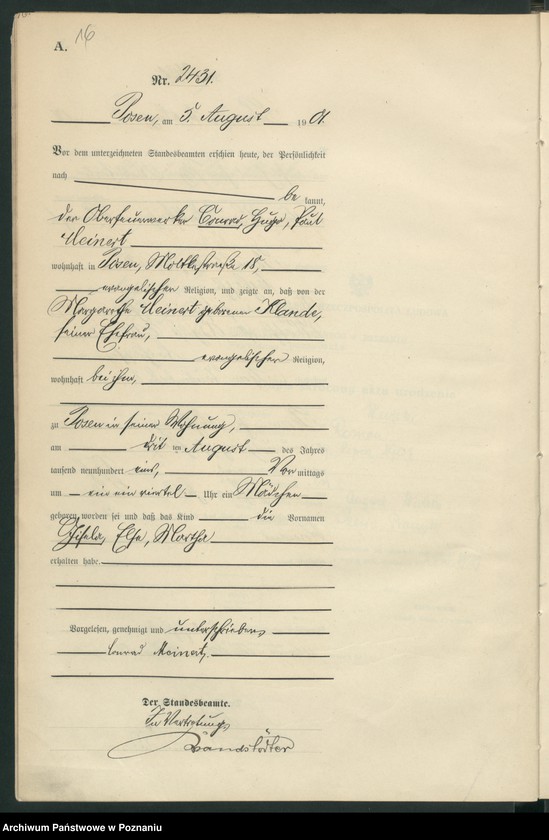 A. 16
Nr. 2431.
Posen, am 5. August 1901.
Vor dem unterzeichneten Standesbeamten erschien heute, der Persönlichkeit
nach
be kannt,
der Oberfeuerwerker Conrad, Hugo, Paul
Meinert
wohnhaft in Posen, Moltkestraße 18,
evangelischer Religion, und zeigte an, daß von der
Margarethe Meinert geborenen Klande,
seiner Ehefrau,
evangelischer Religion,
wohnhaft bei ihm,
zu Posen in seiner Wohnung,
am ten August des Jahres
tausend neunhundert eins, Vor mittags
um ein ein viertel Uhr ein Mädchen
geboren worden sei und daß das Kind die Vornamen
Gisela, Else, Martha
erhalten habe.
Vorgelesen, genehmigt und unterschrieben
Conrad Meinert.
Der Standesbeamte.
In Vertretung
Archiwum Państwowe w Poznaniu